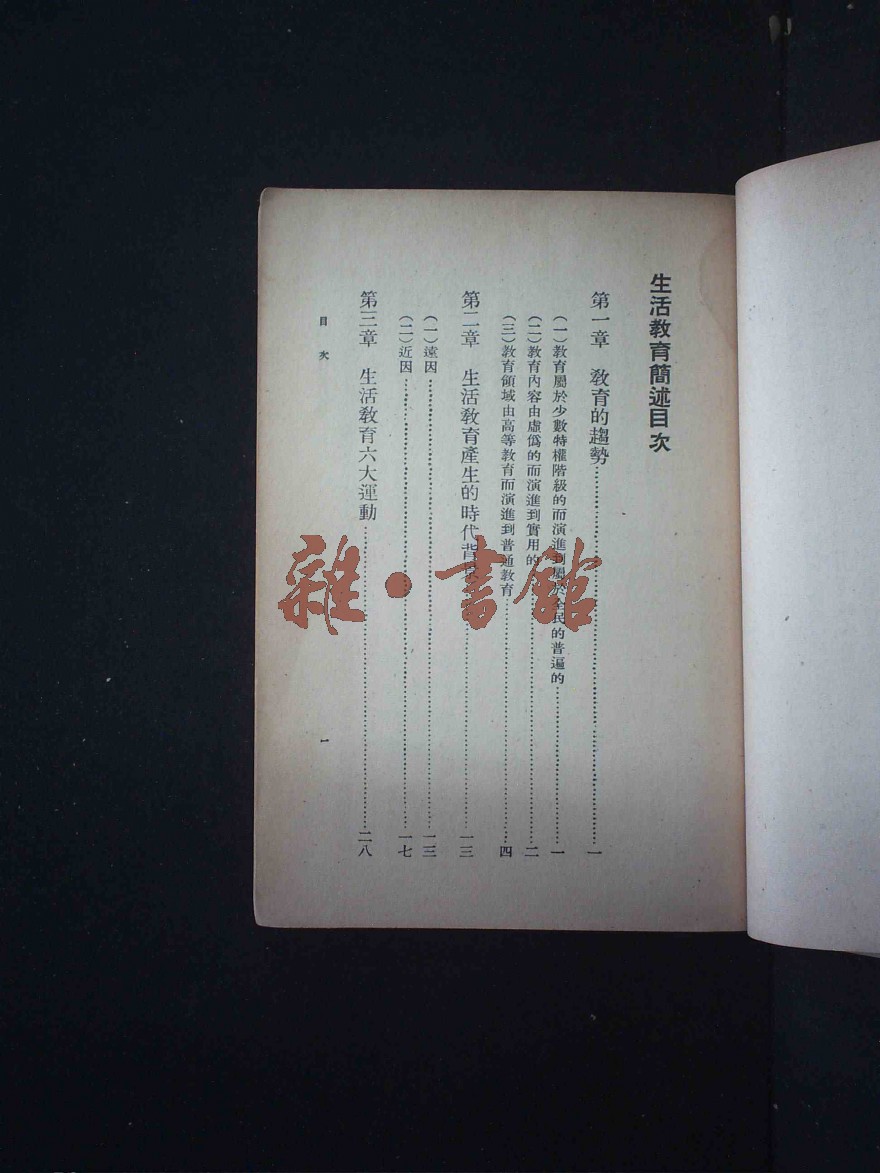 生活教育簡述目次
第一章　教育的趨勢……一
（一）教育屬於少數特權階級的而演進到屬於全民的普遍的……一
（二）教育內容由虛僞的而演進到實用的……二
（三）教育領域由高等教育而演進到普通教育……四
第二章　生活教育產生的時代背景……一三
（一）遠因……一三
（二）近因……一七
第三章　生活教育六大運動……二八
目次
一
雜·書館